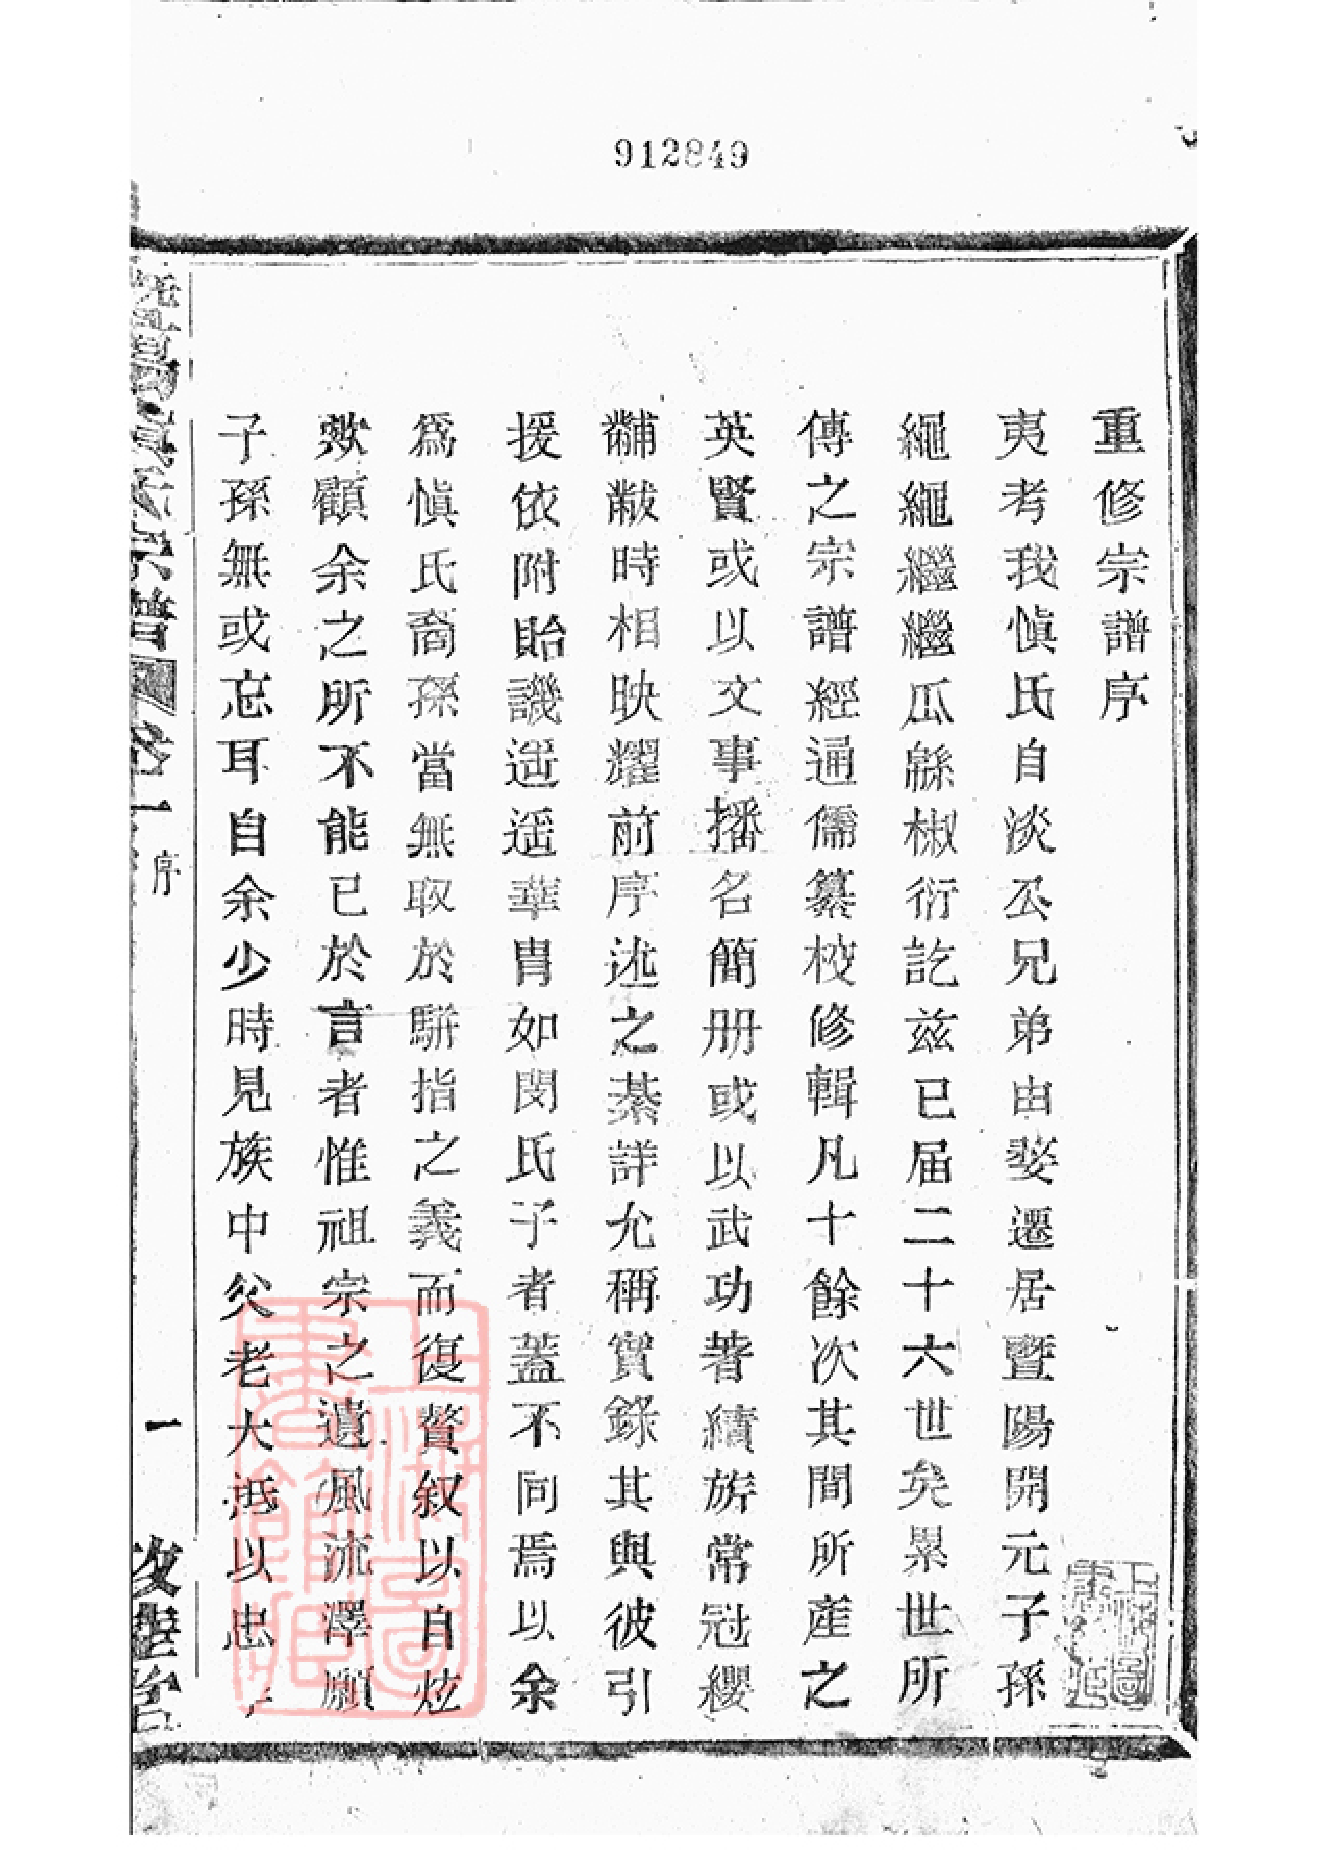 912849
重修宗譜序
夷考我愼氏自淡公兄弟由婺遷居暨陽開元子孫
繩繩繼繼瓜緜椒衍訖玆已届二十六世矣累世所
傳之宗譜經通儒纂校修輯凡十餘次其間所產之
英賢或以文事播名簡册或以武功著績旂常冠纓
黼黻時相映耀前序述之綦詳允稱實錄其與彼引
援依附貽譏遥遥華胄如閔氏子者蓋不同焉以余
爲愼氏裔孫當無取於騈指之義而復贅叙以自炫
歟顧余之所不能已於言者惟祖宗之遺風流澤願
子孫無或忘耳自余少時見族中父老大抵以忠
暨陽愼氏宗譜 卷一 序 一
上海圖書館藏